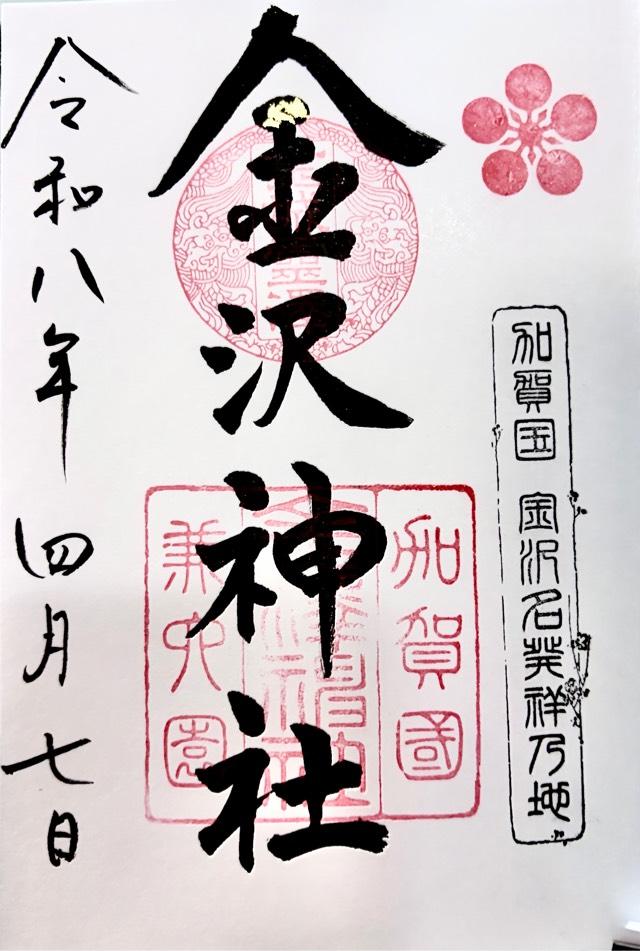 加賀国 金沢名発祥乃地
加賀國
金沢神社
兼六園
令和八年 四月七日